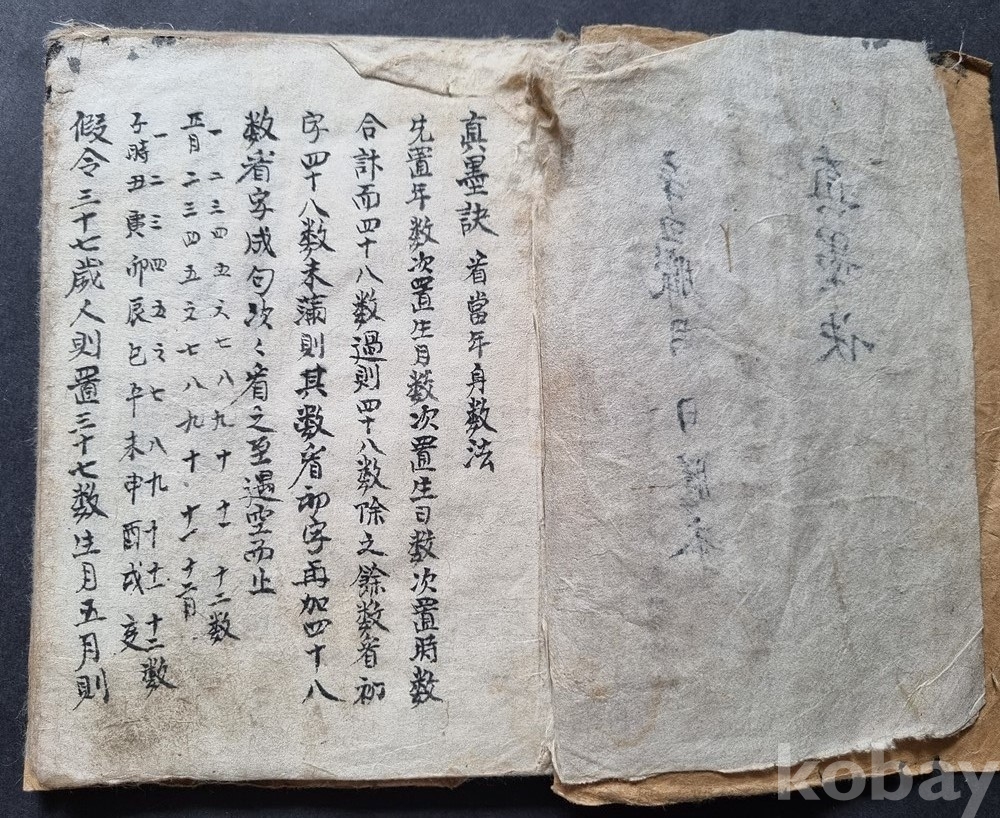 真墨訣 省當年身數法
先置年数次置生月数次置生日数次置時数
合計而四十八数過則四十八数除之餘数省初
字四十八数未蒲則其数省初字再加四十八
数省字成句次々省之至遇空而止
一 二 三 四 五 六 七 八 九 十 十一 十二数
正月 二 三 四 五 六 七 八 九 十 十一 十二月
一 二 三 四 五 六 七 八 九 十 十一 十二数
子時 丑 寅 卯 辰 巳 午 未 申 酉 戌 亥
假令三十七歲人則置三十七数生月五月則
kobay